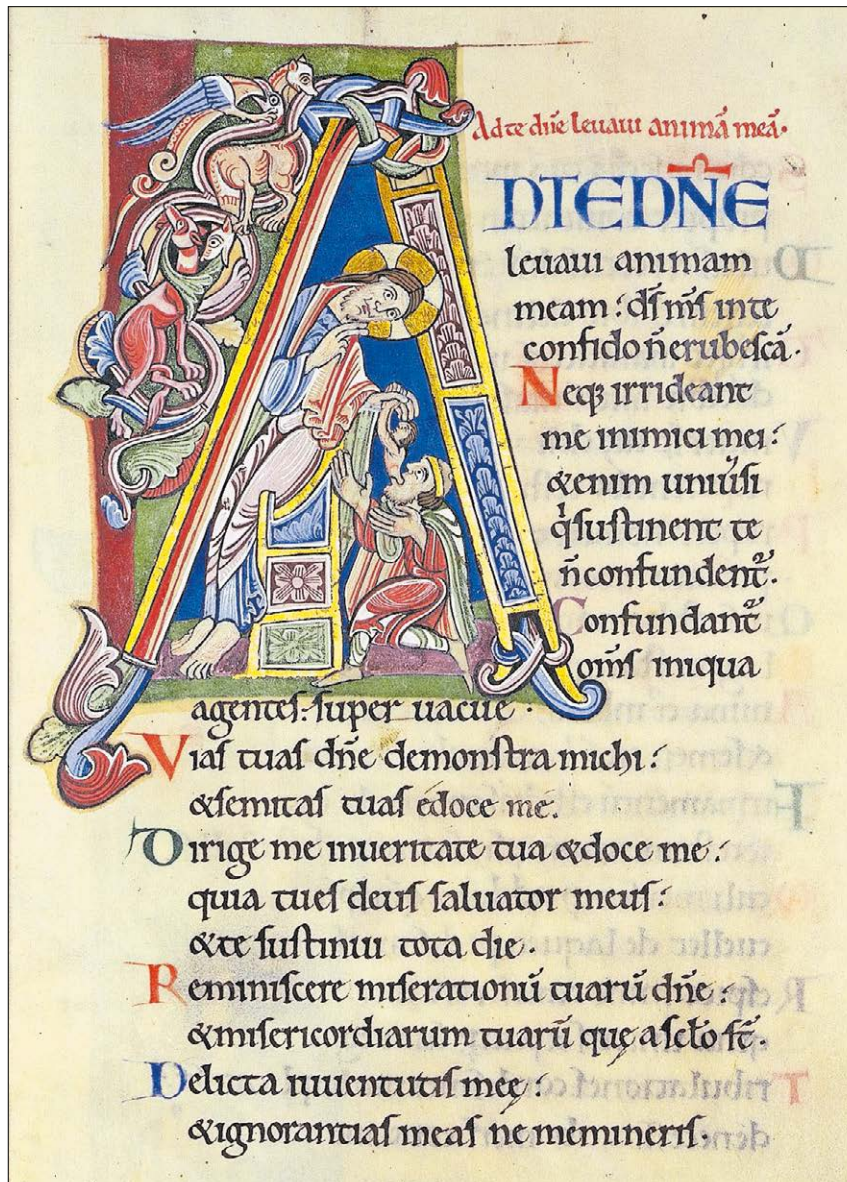 Ad te dn̄e leuaui animā meā.
AD TE DN̄E
leuaui animam
meam : dſ̄ mſ̄ in te
confido n̄ erubeſcā.
Neqꝫ irrideant
me inimici mei :
&enim uniūſi
qͥ ſuſtinent te
n̄ confundent᷑.
Confundant᷑
om̄ſ iniqua
agenteſ : ſuper uacue .
Viaſ tuaſ dn̄e demonſtra michi :
&ſemitaſ tuaſ edoce me.
Dirige me in ueritate tua &doce me :
quia tu eſ deuſ ſaluator meuſ :
&te ſuſtinui tota die .
Reminiſcere miſerationū tuarū dn̄e :
&miſericordiarum tuarū quę a ſcl̄o ſt̄.
Delicta iuuentutiſ meę :
&ignorantiaſ meaſ ne memineriſ.